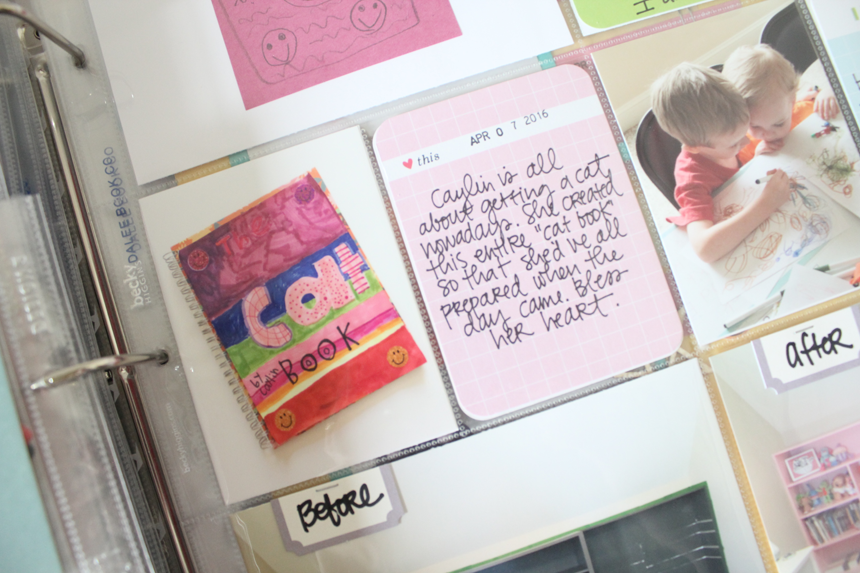 THE
Cat
BOOK
by
Caylin
♥ this
APR 0 7 2016
Caylin is all
about getting a cat
nowadays. She created
this entire "cat book"
so that she'd've all
prepared when the
day came. Bless
her heart.
Before
After
becky